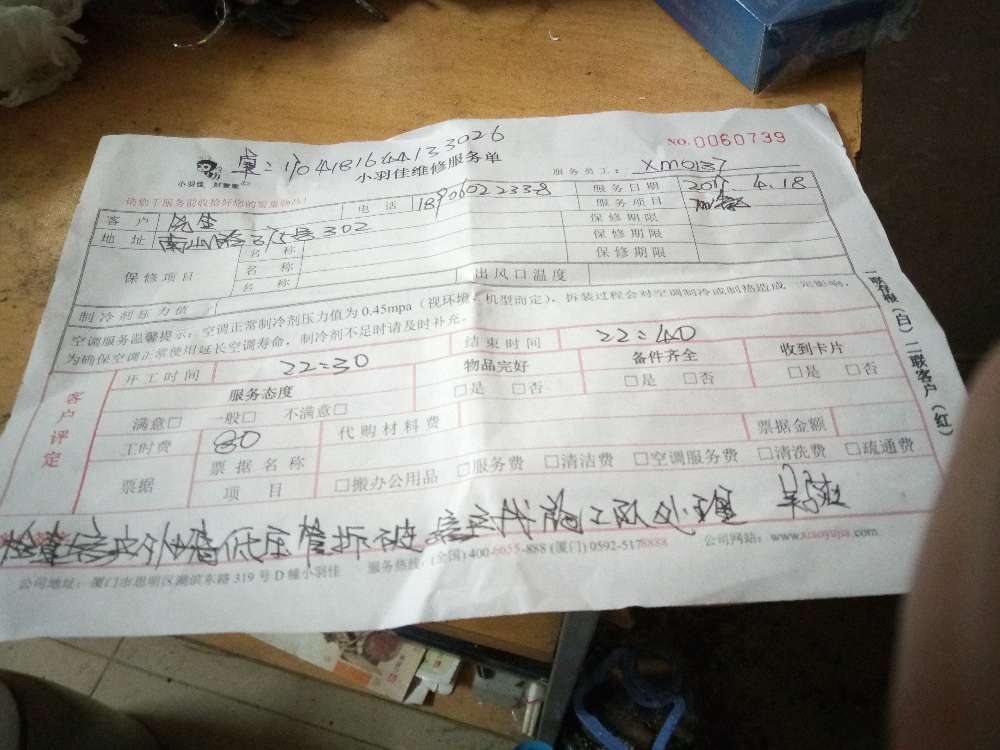 NO.0060739
170418164413302​6
小羽佳 好管家
小羽佳维修服务单
服务员工: XM0137
请您于服务前收拾好您的贵重物品!
客户 电话 18906022338 服务日期 2017. 4. 18
地址 南山路375号302 服务项目 加氨
保修项目 名称 保修期限
名称 保修期限
名称 保修期限
制冷剂压力值 出风口温度
空调服务温馨提示:空调正常制冷剂压力值为0.45mpa(视环境、机型而定),拆装过程会对空调制冷或制热造成一定影响,
为确保空调正常使用延长空调寿命,制冷剂不足时请及时补充。
开工时间 22:30 结束时间 22:40
客户评定 服务态度 物品完好 备件齐全 收到卡片
满意□ 一般□ 不满意□ □是 □否 □是 □否 □是 □否
工时费 80 代购材料费 票据金额
票据 票据名称
项目 □搬办公用品 □服务费 □清洁费 □空调服务费 □清洗费 □疏通费
检查客户外墙低压管折破 工队处理
公司地址:厦门市思明区湖滨东路319号D幢小羽佳 服务热线:(全国)400-6655-888 (厦门)0592-5178888 公司网站:www.xiaoyujia.com
一联存根(白)二联客户(红)